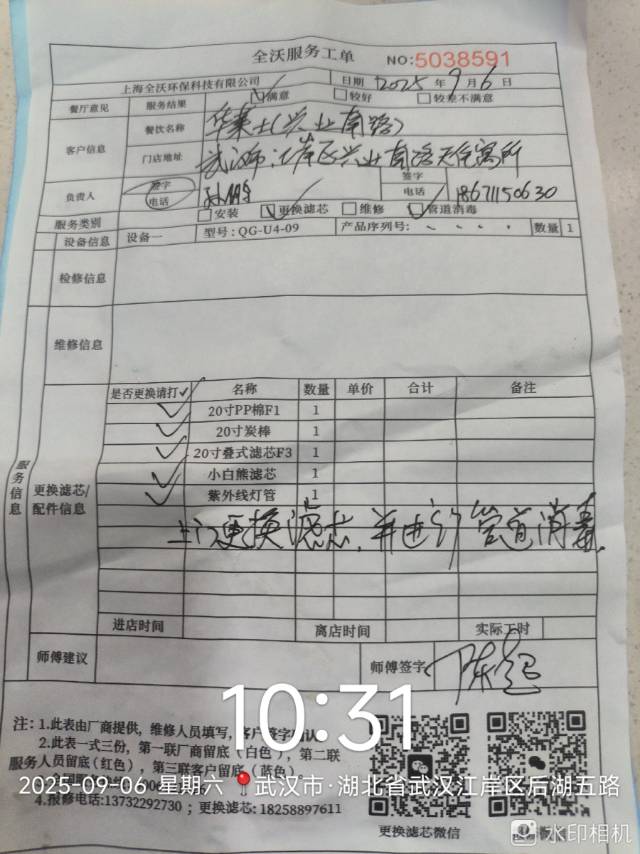 全沃服务工单 NO:5038591
上海全沃环保科技有限公司 日期 2025 年 9 月 6 日
餐厅意见 服务结果 满意 较好 较差不满意
客户信息 餐饮名称 华莱士(兴业南路)
门店地址 武汉市江岸区兴业南路天佳寓所
负责人 签字 签字
电话 电话 18671150630
服务类别 安装 更换滤芯 维修 管道消毒
设备信息 设备一 型号:QG-U4-09 产品序列号: 数量 1
检修信息
维修信息
服务信息
更换滤芯/
配件信息
是否更换请打✓ 名称 数量 单价 合计 备注
✓ 20寸PP棉F1 1
✓ 20寸炭棒 1
✓ 20寸叠式滤芯F3 1
✓ 小白熊滤芯 1
✓ 紫外线灯管 1
上门更换滤芯,并进行管道消毒.
进店时间 离店时间 实际工时
师傅建议 师傅签字 陈超
10:31
注:1.此表由厂商提供,维修人员填写,客户签字确认
2.此表一式三份,第一联厂商留底(白色),第二联
服务人员留底(红色),第三联客户留底(蓝色)。
2025-09-06 星期六 武汉市·湖北省武汉江岸区后湖五路
4.报修电话:13732292730;更换滤芯:18258897611
更换滤芯微信
水印相机